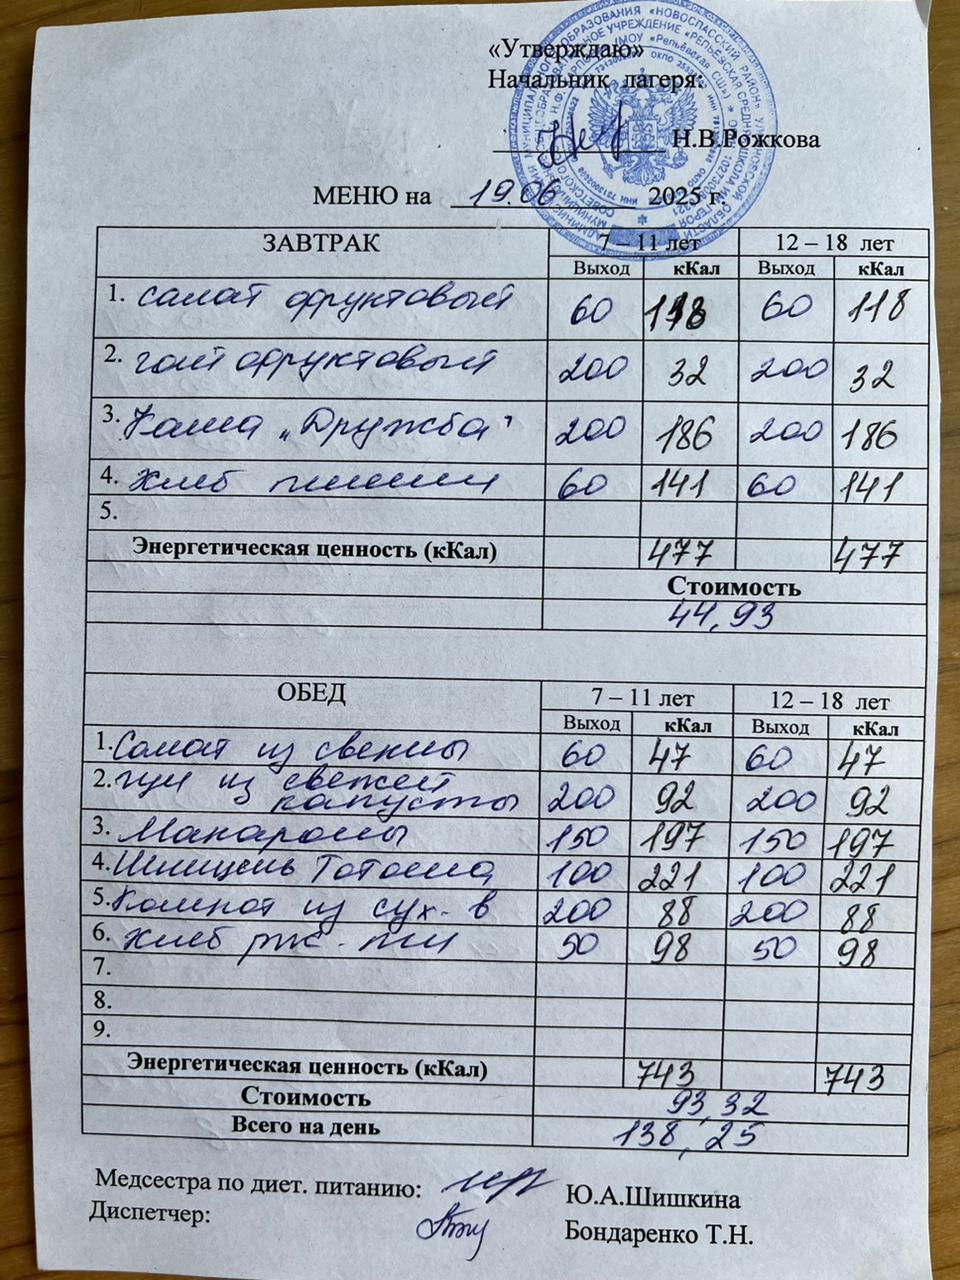 «Утверждаю»
Начальник лагеря:
Н.В.Рожкова
МЕНЮ на 19.06 2025 г.
ЗАВТРАК 7 – 11 лет 12 – 18 лет
Выход кКал Выход кКал
1. салат фруктовый 60 118 60 118
2. чай фруктовый 200 32 200 32
3. Каша „Дружба" 200 186 200 186
4. Хлеб пшенич 60 141 60 141
5.
Энергетическая ценность (кКал) 477 477
Стоимость
44,93
ОБЕД 7 – 11 лет 12 – 18 лет
Выход кКал Выход кКал
1. Салат из свеклы 60 47 60 47
2. щи из свежей
капусты 200 92 200 92
3. Макароны 150 197 150 197
4. Шницель Тотоша 100 221 100 221
5. Компот из сух. в 200 88 200 88
6. Хлеб рж. - пш 50 98 50 98
7.
8.
9.
Энергетическая ценность (кКал) 743 743
Стоимость 93,32
Всего на день 138,25
Медсестра по диет. питанию: Ю.А.Шишкина
Диспетчер: Бондаренко Т.Н.